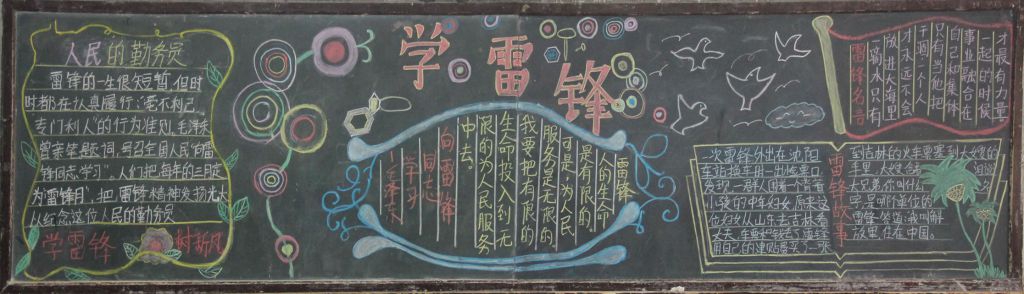 人民的勤务员
雷锋的一生很短暂,但时
时都在认真履行"毫不利己,
专门利人"的行为准则,毛泽东
曾亲笔题词,号召全国人民"向雷
锋同志学习"。人们把每年的三月定
为"雷锋月",把雷锋精神发扬光大
以纪念这位人民的勤务员
学雷锋
树新风
学雷锋
雷锋
人的生命
是有限的
可是,为人民
服务是无限的
我要把有限的
生命投入到无
限的为人民服务
中去。
向雷锋
同志
学习
—毛泽东
才最有力量
一起的时候
事业融合在
自己和集体
只有当他把
干涸,一个人
才永远不会
放进大海里
一滴水只有
雷锋名言
雷锋故事
一次雷锋外出在沈阳
车站换车
发现一群人围
小孩的中年妇女,原来这
位妇女从山东去吉林看
丈夫,车票
自己的津贴
到吉林的火车票塞到大嫂
手里,大嫂
兄弟,你叫什
字,是哪个单位的
雷锋笑道:"我叫解
放军,住在中国。"